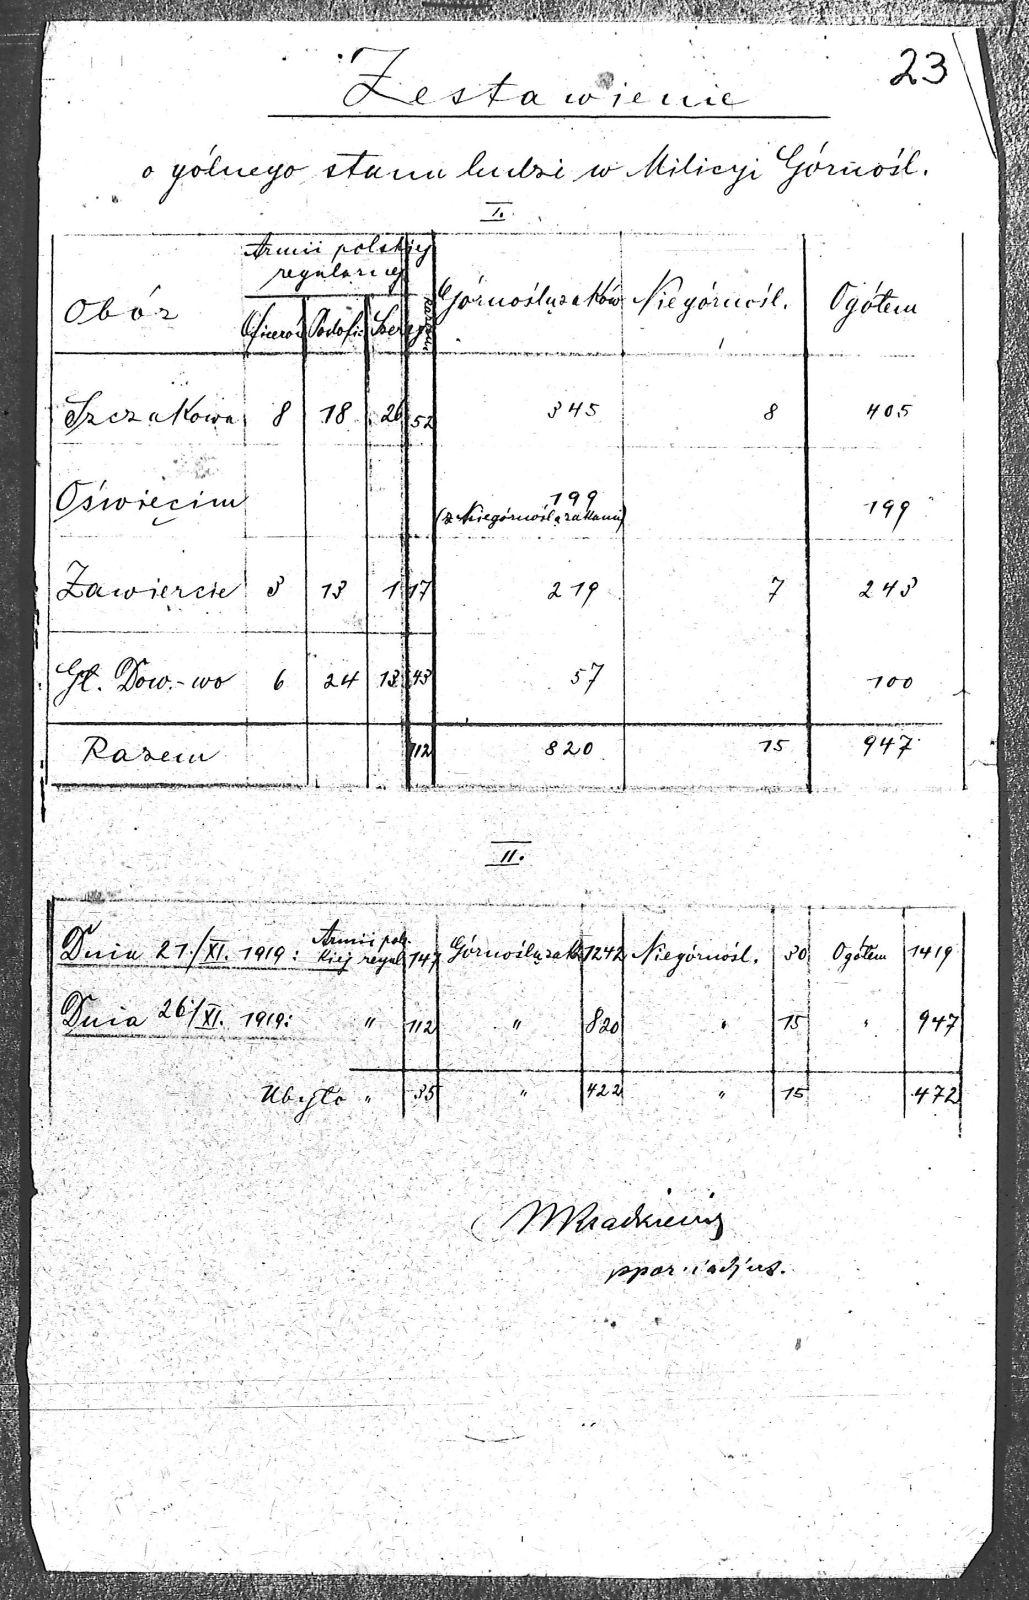 23
Zestawienie
ogólnego stanu ludzi w Milicyi Górnośl.
I.
Obóz Armii polskiej regularnej Razem Górnoślązaków Niegórnośl. Ogółem
Oficerów Podofic Szereg
Szczakowa 8 18 26 52 345 8 405
Oświęcim 199 199
(z Niegórnoślązakami)
Zawiercie 3 13 1 17 219 7 243
Gł. Dow.-wo 6 24 13 43 57 100
Razem 112 820 15 947
II.
Dnia 21./XI. 1919: Armii polskiej regul 147 Górnoślązak. 1242 Niegórnośl. 30 Ogółem 1419
Dnia 26/XI. 1919: " 112 " 820 " 15 " 947
Ubyło " 35 " 422 " 15 472
ppor. i adjut.